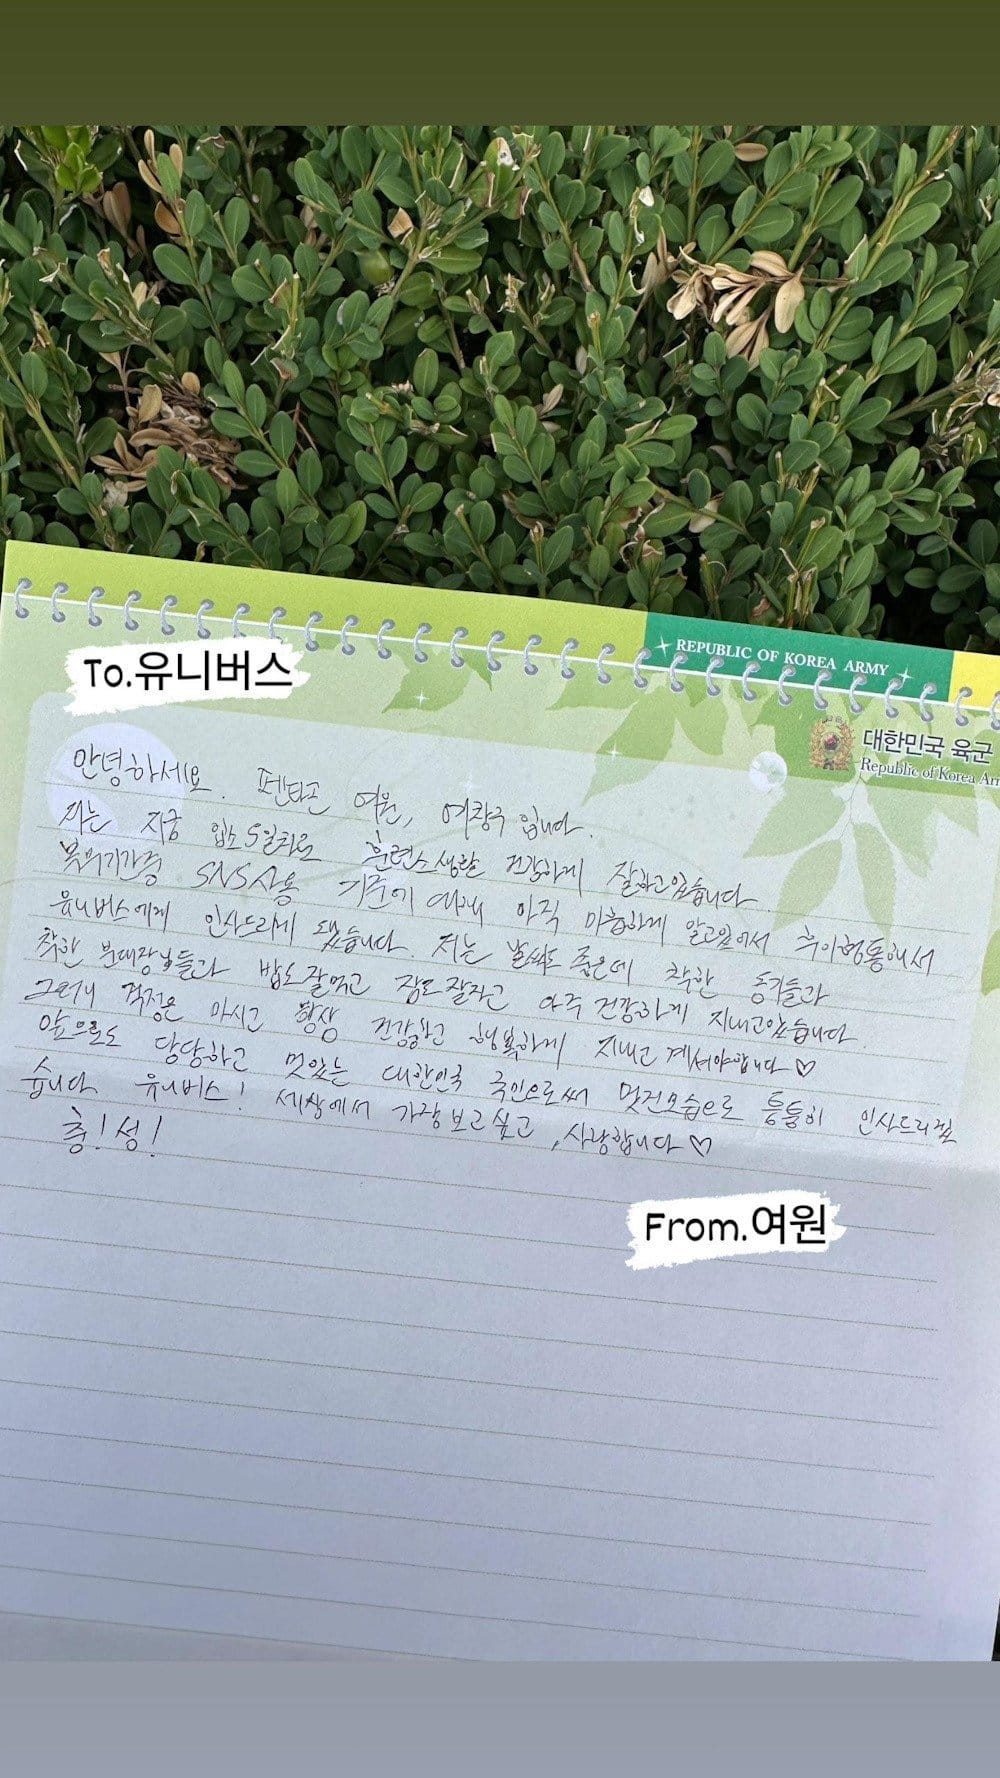 REPUBLIC OF KOREA ARMY
To.유니버스
대한민국 육군
Republic of Korea Ar
안녕하세요. 펜타곤 여원, 여창구 입니다.
저는 지금 입소 5일차로 훈련소생활 건강하게 잘하고있습니다.
복무기간중 SNS사용 기준에 대해 아직 미흡하게 알고있어서 추이형통해서
유니버스에게 인사드리게 됐습니다. 저는 날씨도 좋은데 착한 동기들과
착한 분대장님들과 밥도잘먹고 잠도잘자고 아주 건강하게 지내고있습니다.
그러니 걱정은 마시고 항상 건강하고 행복하게 지내고 계셔야합니다♡
앞으로도 당당하고 멋있는 대한민국 국민으로써 멋진모습으로 틈틈히 인사드리겠
습니다 유니버스! 세상에서 가장보고싶고, 사랑합니다♡
충!성!
From.여원